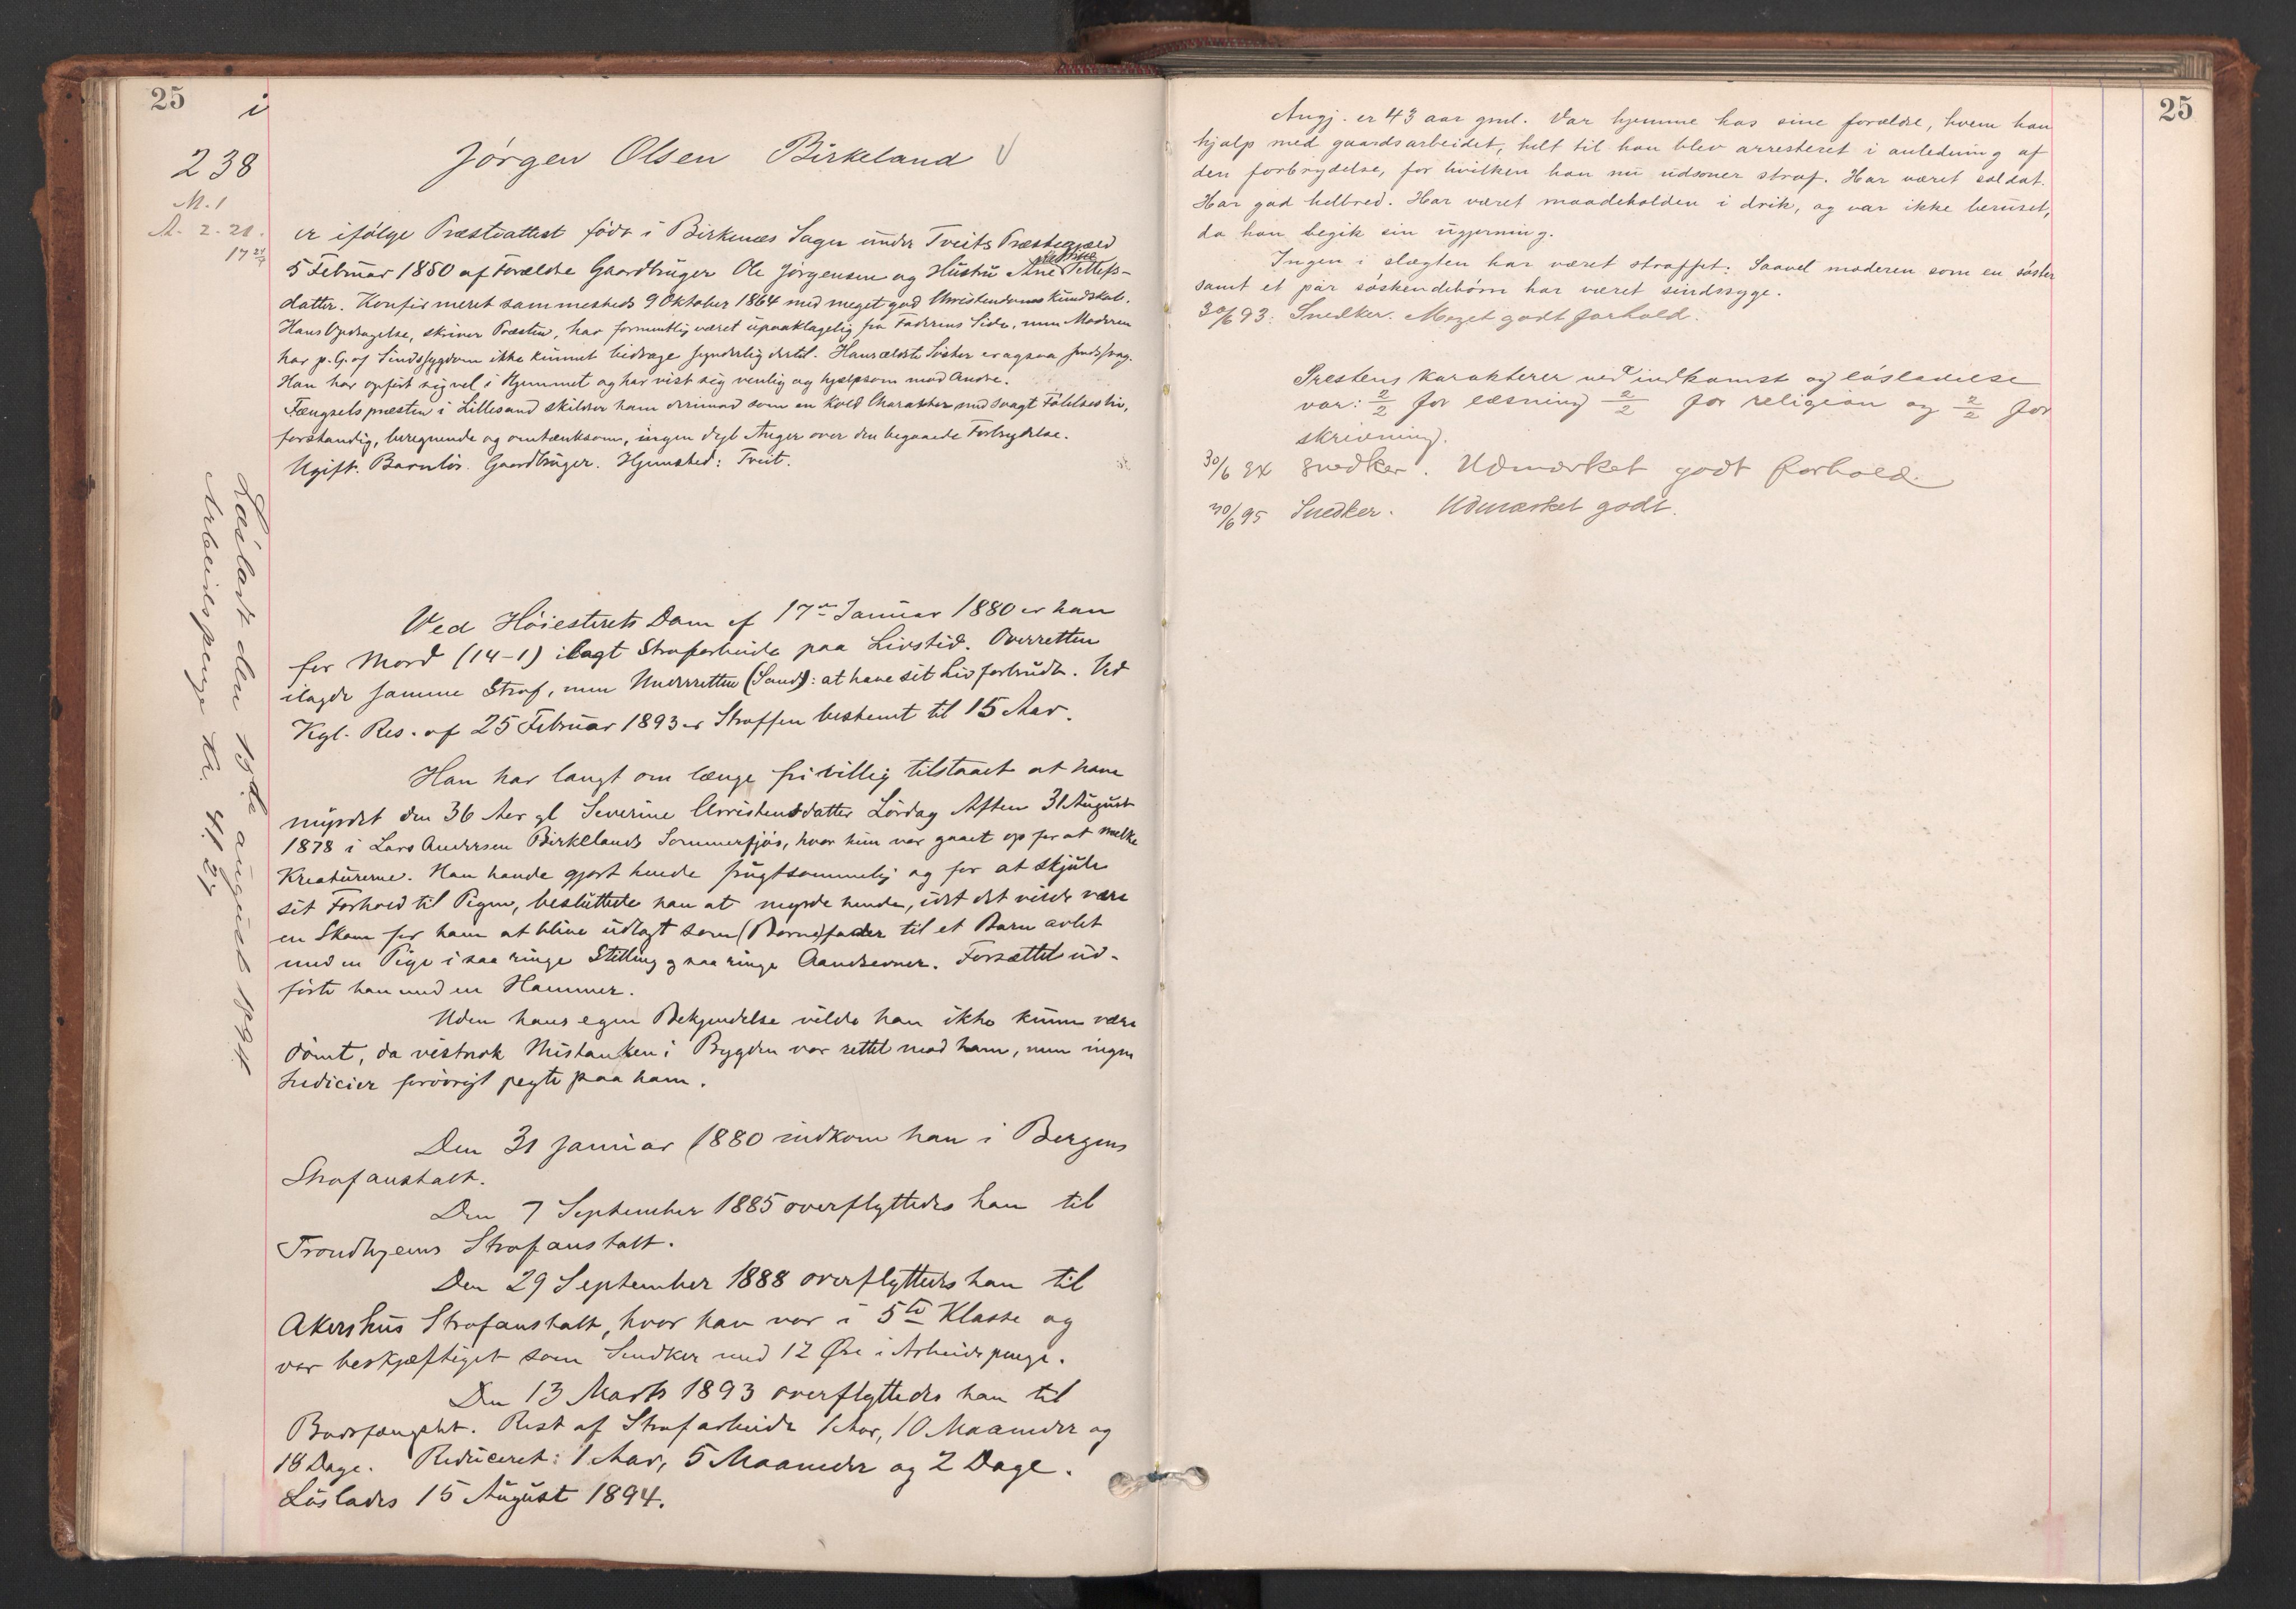 25
i
238
M. 1
A. 2. 21.
Jørgen Olsen Birkeland
er ifølge Præsteattest født i Birkenes Sogn under Tveits Præstegjæld
5 Februar 1850 af Forældre Gaardbruger Ole Jørgensen og Hustru Ane Tellefs-
datter. Konfirmeret sammesteds 9 Oktober 1864 med meget god Christendomskundskab.
Hans Opdragelse, skriver Præsten, har formentlig været upaaklagelig fra Faderens Side, men Moderen
har p. G. af Sindssygdom ikke kunnet bidrage synderlig dertil. Hans ældste Søster er ogsaa sindssvag.
Han har opført sig vel i Hjemmet og har vist sig venlig og hjælpsom mod Andre.
Fængselspræsten i Lillesand skildrer ham derimod som en kold Charakter med svagt Følelsesliv,
forstandig, beregnende og omtænksom, ingen dyb Anger over den begaaede Forbrydelse.
Ugift. Barnløs. Gaardbruger. Hjemsted: Tveit.
Ved Høiesterets Dom af 17de Januar 1880 er han
for Mord (14-1) ilagt Strafarbeide paa Livstid. Overretten
ilagde samme Straf, men Underretten (Sand): at have sit Liv forbrudt. Ved
Kgl. Res. af 25 Februar 1893 er Straffen bestemt til 15 Aar.
Han har langt om længe frivillig tilstaaet at have
myrdet den 36 Aar gl Severine Christensdatter Lørdag Aften 31 August
1878 i Lars Andersen Birkelands Sommerfjøs, hvor hun var gaaet op for at melke
Kreaturerne. Han havde gjort hende frugtsommelig og for at skjule
sit Forhold til Pigen, besluttede han at myrde hende, idet det vilde være
en Skam for ham at blive udlagt som (Barne)fader til et Barn avlet
med en Pige i saa ringe Stilling og saa ringe Aandsevner. Forsættet ud-
førte han med en Hammer.
Uden hans egen Bekjendelse vilde han ikke kunne være
dømt, da vistnok Mistanken i Bygden var rettet mod ham, men ingen
Indicier forøvrigt pegte paa ham.
Den 31 Januar 1880 indkom han i Bergens
Strafanstalt.
Den 7 September 1885 overflyttedes han til
Trondhjems Strafanstalt.
Den 29 September 1888 overflyttedes han til
Akershus Strafanstalt, hvor han var i 5te Klasse og
var beskjæftiget som Snedker med 12 Øre i Arbeidspenge.
Den 13 Marts 1893 overflyttedes han til
Bodsfængslet. Rest af Strafarbeide 1 Aar, 10 Maaneder og
18 Dage. Reduceret: 1 Aar, 5 Maaneder og 2 Dage.
Løslades 15 August 1894.
Løsladt den 15de august 1894.
Arbeidspenge kr.
25
Angj. er 43 aar gml. Var hjemme hos sine forældre, hvem han
hjalp med gaardsarbeidet, helt til han blev arresteret i anledning af
den forbrydelse, for hvilken han nu udsoner straf. Har været soldat.
Har god helbred. Har været maadeholden i drik, og var ikke beruset,
da han begik sin ugjerning.
Ingen i slægten har været straffet. Saavel moderen som en søster
samt et par søskendebørn har været sindssyge.
30/6 93: Snedker. Meget godt forhold.
Prestens karakterer ved indkomst og løsladelse
var: 2/2 for læsning 2/2 for religion og 2/2 for
skrivning.
30/6 94 Snedker. Udmerket godt forhold.
30/6 95 Snedker. Udmærket godt.